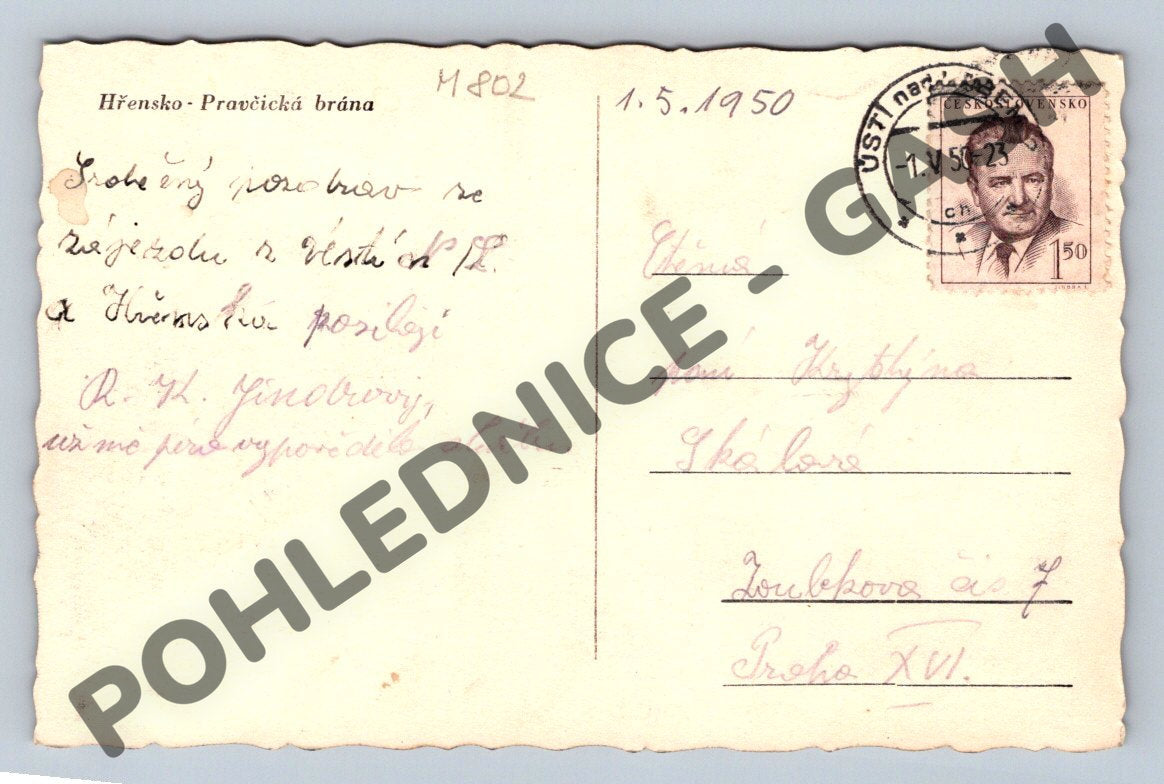 Hřensko - Pravčická brána
M 802
1.5.1950
Srdečný pozdrav ze
zájezdu z Ústí n/L.
a Hřenska posílají
R. K. Jindrovi,
už mé péro vypovědělo
ÚSTÍ nad LABEM
-1.V 50-23
ch
ČESKOSLOVENSKO
1 50
Ctěná
paní Krystýna
Skálová
Zoubkova čís 7
Praha XVI.
POHLEDNICE - GASH